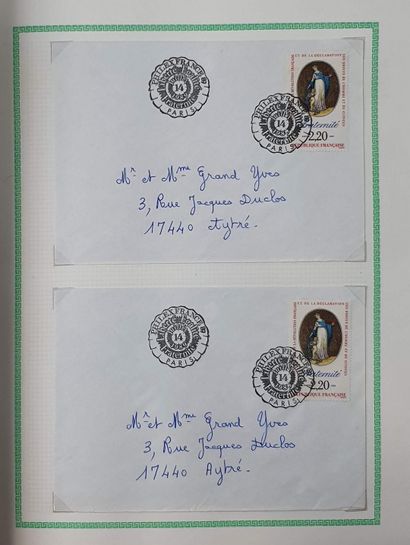 PHILEXFRANCE 89
14
PARIS
PHILEXFRANCE 89
14
PARIS
Fraternité
2,20
RÉPUBLIQUE FRANÇAISE
Mr et Mme Grand Yves
3, Rue Jacques Duclos
17440 Aytré.
PHILEXFRANCE 89
14
PARIS
PHILEXFRANCE 89
14
PARIS
Fraternité
2,20
RÉPUBLIQUE FRANÇAISE
Mr et Mme Grand Yves
3, Rue Jacques Duclos
17440 Aytré.